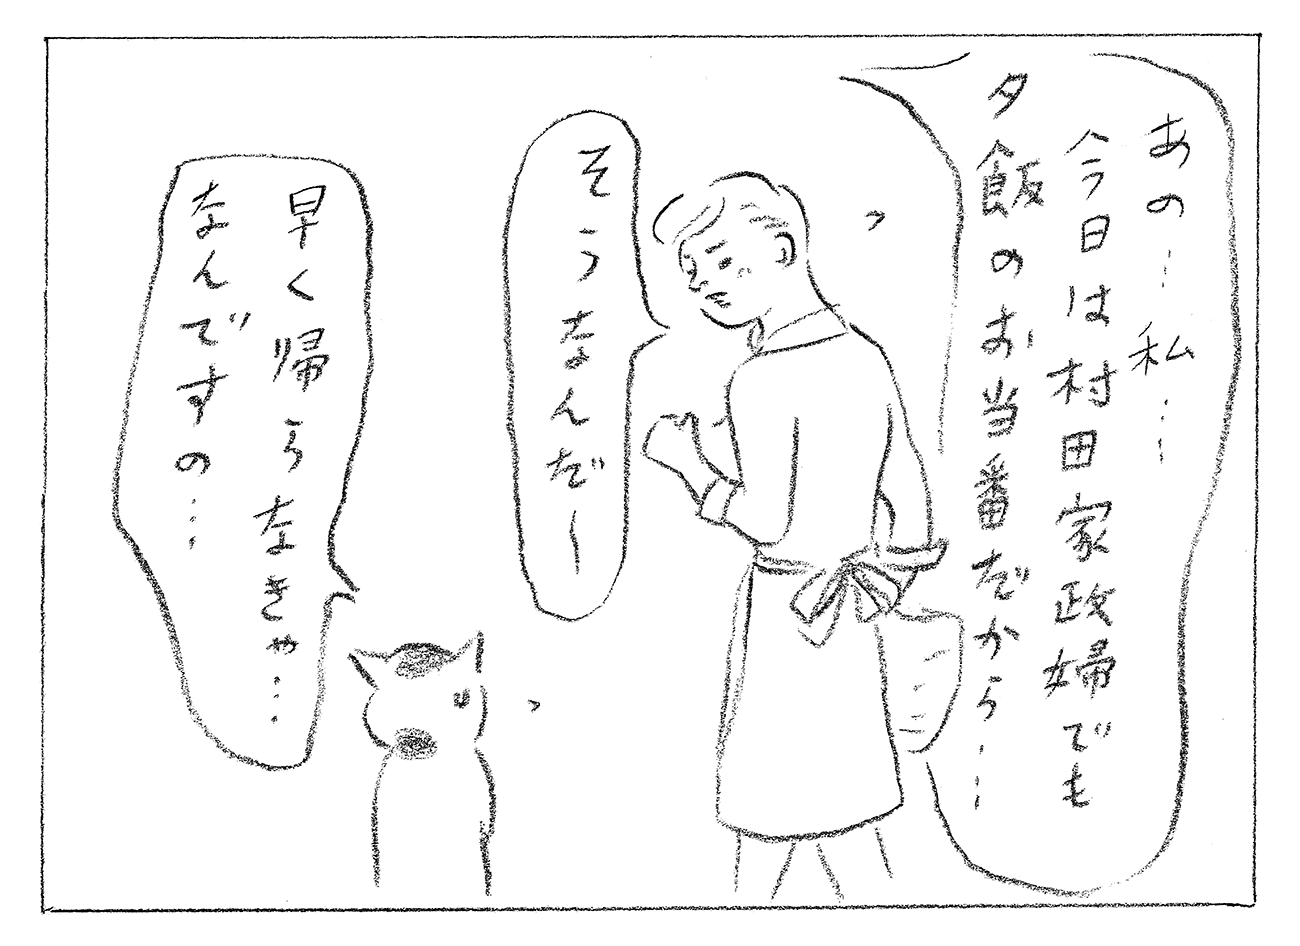 あの…私…
今日は村田家政婦でも
夕飯のお当番だから…
そうなんだ〜
早く帰らなきゃ…
なんですの…